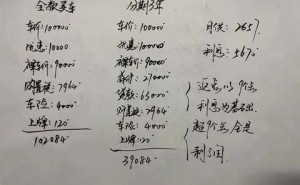 全款买车
车价:100000
优惠:10000
裸车价:90000
购置税:7964
车险:4000
上牌:120
102084
分期3年
车价:100000
优惠:10000
裸车价:90000
首付:27000
贷款:63000
购置税:7964
车险:4000
上牌:120
39084
月供:2657
利息:5670
利息为基础
超9个点全是
利润